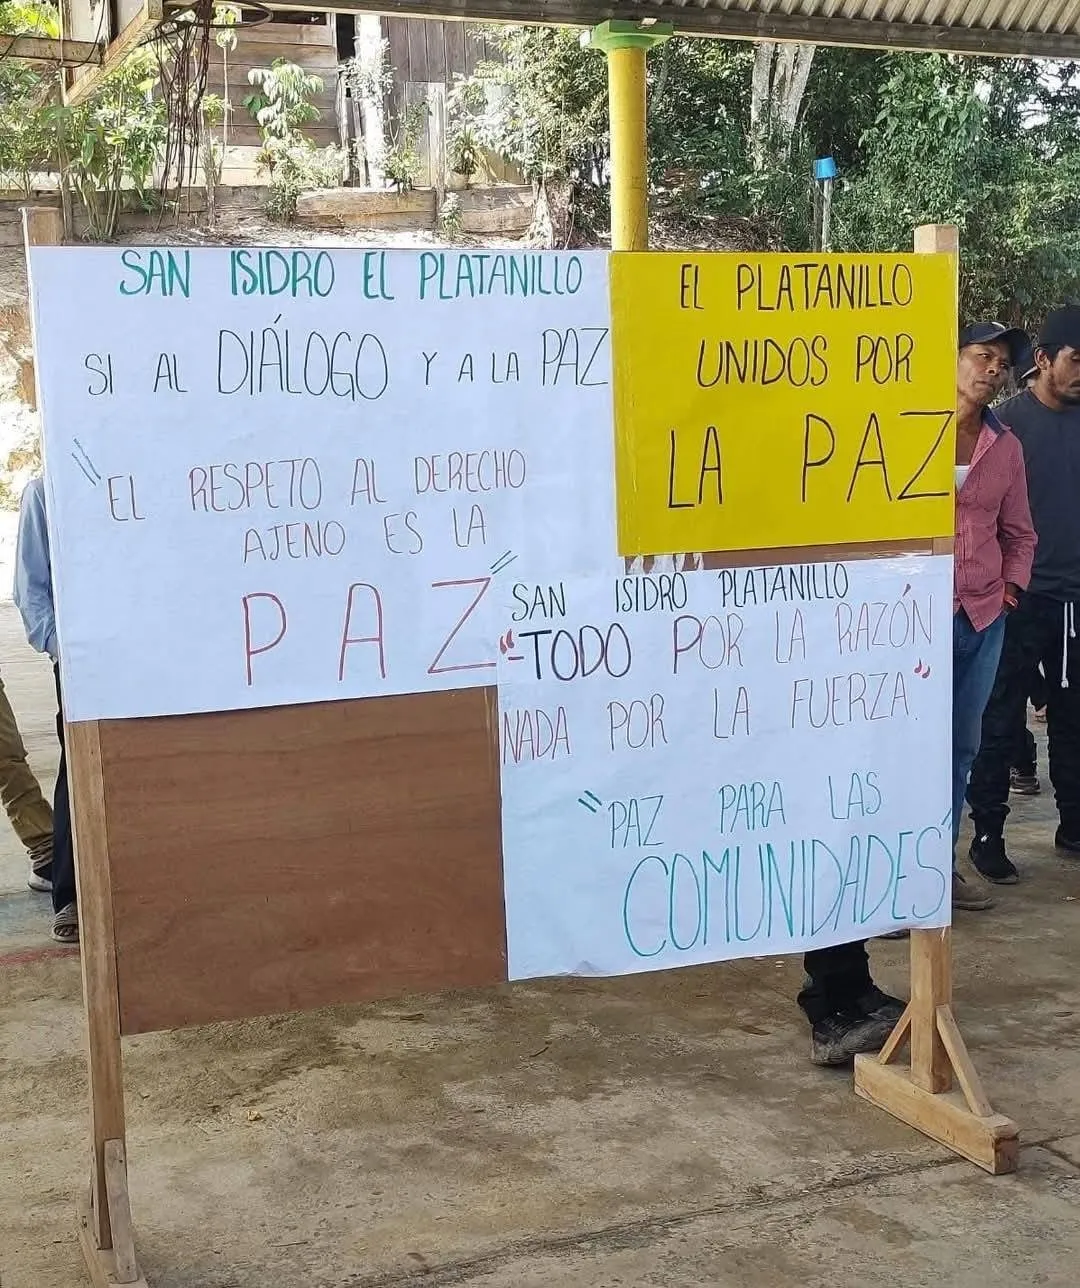 SAN ISIDRO EL PLATANILLO
SI AL DIÁLOGO Y A LA PAZ
"EL RESPETO AL DERECHO
AJENO ES LA
PAZ"
EL PLATANILLO
UNIDOS POR
LA PAZ
SAN ISIDRO PLATANILLO
"TODO POR LA RAZÓN
NADA POR LA FUERZA".
"PAZ PARA LAS
COMUNIDADES"